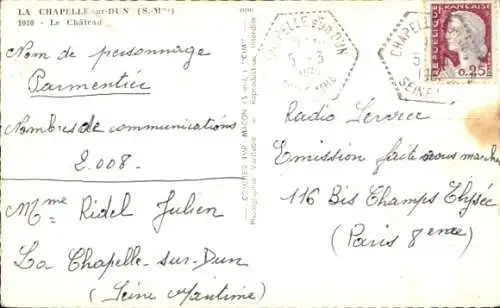 LA CHAPELLE-sur-DUN (S.-Mme)
1010 - Le Château
Nom de personnage
Parmentier
Nombres de communications
2.008.
Mme Ridel Julien
La Chapelle-sur-Dun
(Seine Maritime)
COMBIER IMP. MACON (S.-et-L.) "CIM"
Reproduction interdite
CHAPELLE SUR DUN
5-3
CHAPELLE
SEINE
FRANÇAISE
0,25
Radio Service
Emission faite vous
116 Bis Champs Elysée
(Paris 8eme)